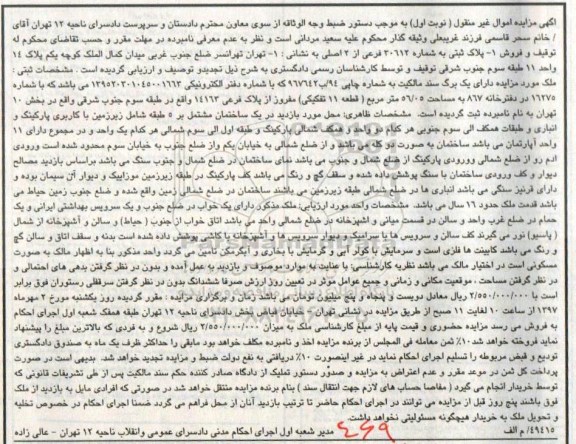 آگهی مزایده اموال غیر منقول ( نوبت اول) به موجب دستور ضبط وجه الوثاقه از سوی معاون محترم دادستان و سرپرست دادسرای ناحیه ۱۲ تهران آقای
/ خانم سحر قاسمی فرزند غریبعلی وثیقه گذار محکوم علیه سعید مردانی است و نظر به عدم معرفی نامبرده در مهلت مقرر و حسب تقاضای محکوم له
توقیف و فروش ۱- پلاک ثبتی به شماره ۳۰۶۱۳ فرعی از ۲ اصلی به نشانی : ۱- تهران تهرانسر ضلع جنوب غربی میدان کمال الملک کوچه یکم پلاک ۱۴
واحد ۱۱ طبقه سوم جنوب شرقی توقیف و توسط کارشناسان رسمی دادگستری به شرح ذیل تجدیدو توصیف و ارزیابی گردیده است . مشخصات ثبتی :
ملک مورد مزایده دارای یک برگ سند مالکیت به شماره چاپی ۹۶۷۶۴۲/ب۹۴ که با شماره دفتر الکترونیکی ۱۳۹۵۲۰۳۰۱۰۴۵۰۰۱۶۶۳ می باشد که با شماره
۱۶۲۷۵ در دفترخانه ۸۶۷ به مساحت ۵۶/۰۵ متر مربع ( قطعه ۱۱ تفکیکی) مفروز از پلاک فرعی ۱۴۱۶۳ واقع در طبقه سوم جنوب شرقی واقع در بخش ۱۰
تهران به نام نامبرده ثبت گردیده است. مشخصات ظاهری: محل مورد بازدید در یک ساختمان مشتمل بر ۵ طبقه شامل زیرزمین با کاربری پارکینگ و
انباری و طبقات همکف الی سوم جنوبی هر کدام دو واحد و همکف شمالی پارکینگ و طبقه اول الی سوم شمالی هر کدام یک واحد و در مجموع دارای ۱۱
واحد آپارتمان می باشد ساختمان به صورت دو کله می باشد و از ضلع شمالی به خیابان یکم واز ضلع جنوب به خیابان سوم محدود شده است ورودی
آدم رو از ضلع شمالی وورودی پارکینگ از ضلع شمال و جنوب می باشد نمای ساختمان در ضلع شمال و جنوب سنگ می باشد براساس بازدید مصالح
دیوار و کف ورودی ساختمان با سنگ پوشش داده شده و سقف گچ و رنگ می باشد کف پارکینگ در طبقه زیرزمین موزاییک و دیوار آن سیمان بوده و
دارای قرنیز سنگی می باشد انباری ها در ضلع شمالی طبقه زیرزمین می باشند ساختمان در ضلع شمالی زمین واقع شده و ضلع جنوب زمین حیاط می
باشد قدمت ملک حدود ۱۶ سال می باشد. مشخصات واحد مورد ارزیابی: ملک مذکور دارای یک خواب در ضلع جنوب و یک سرویس بهداشتی ایرانی و یک
حمام در ضلع غرب واحد و سالن در قسمت میانی و آشپزخانه در ضلع شمالی واحد می باشد اتاق خواب از جنوب ( حیاط) و سالن و آشپزخانه از شمال
( پاسیو) نور می گیرند کف سالن و سرویس ها با سرامیک و دیوار سرویس ها و آشپزخانه با کاشی پوشش داده شده است بدنه و سقف اتاق و سالن گچ
و رنگ می باشد کابینت ها فلزی است و سرمایش با کولر آبی و گرمایش با بخاری و آبگرمکن تأمین می گردد واحد مذکور بنا به اظهار مالک به صورت
مسکونی است در اختیار مالک می باشد نظریه کارشناسی: با عنایت به موارد موصوف و بازدید به عمل آمده و بدون در نظر گرفتن بدهی های احتمالی و
در نظر گرفتن مساحت ، موقعیت مکانی و زمانی و جمیع عوامل موثر در تعیین روز ارزش صرفا ششدانگ بدون در نظر گرفتن سرقفلی رستوران فوق برابر
است با ۲/۵۵۰/۰۰۰/۰۰۰ ریال معادل دویست و پنجاه و پنج میلیون تومان می باشد زمان برگزاری مزایده : مقرر گردیده روز یکشنبه مورخ ۲ مهرماه
۱۳۹۷ از ساعت ۱۰ لغایت ۱۱ صبح از طریق مزایده در نشانی تهران - خیابان فیاض بخش دادسرای ناحیه ۱۲ تهران طبقه همکف شعبه اول اجرای احکام
به فروش می رسد مزایده حضوری و قیمت پایه از مبلغ کارشناسی ملک به میزان ۲/۵۵۰/۰۰۰/۰۰۰ ریال شروع و به فردی که بالاترین مبلغ را پیشنهاد
نماید فروخته خواهد شد ۱۰٪ ثمن معامله فی المجلس از برنده مزایده اخذ و نامبرده مکلف خواهد بود مابقی را حداکثر ظرف یک ماه به صندوق دادگستری
تودیع و فیش مربوطه را تسلیم اجرای احکام نماید در غیر اینصورت ۱۰٪ دریافتی به نفع دولت ضبط و مزایده تجدید خواهد شد. بدیهی است در صورت
پرداخت کل ثمن در موعد مقرر و عدم اعتراض به مزایده و صدور دستور تملیک از دادگاه صادر کننده حکم سند مالکیت پس از طی تشریفات قانونی که
توسط خریدار انجام می گیرد ( مفاصا حساب های لازم جهت انتقال سند ) بنام برنده مزایده منتقل خواهد شد در صورتی که افرادی مایل به بازدید از ملک
فوق باشند پنج روز قبل از مزایده می توانند در اجرای احکام حاضر تا ترتیب بازدید آنان از محل فراهم می گردد ضمنا اجرای احکام در خصوص تخلیه
و تحویل ملک به خریدار هیچگونه مسئولیتی نخواهد داشت.
۴۹۴۱۵/ م الف
۴۶۹
مدیر شعبه اول اجرای احکام مدنی دادسرای عمومی وانقلاب ناحیه ۱۲ تهران - عالی زاده